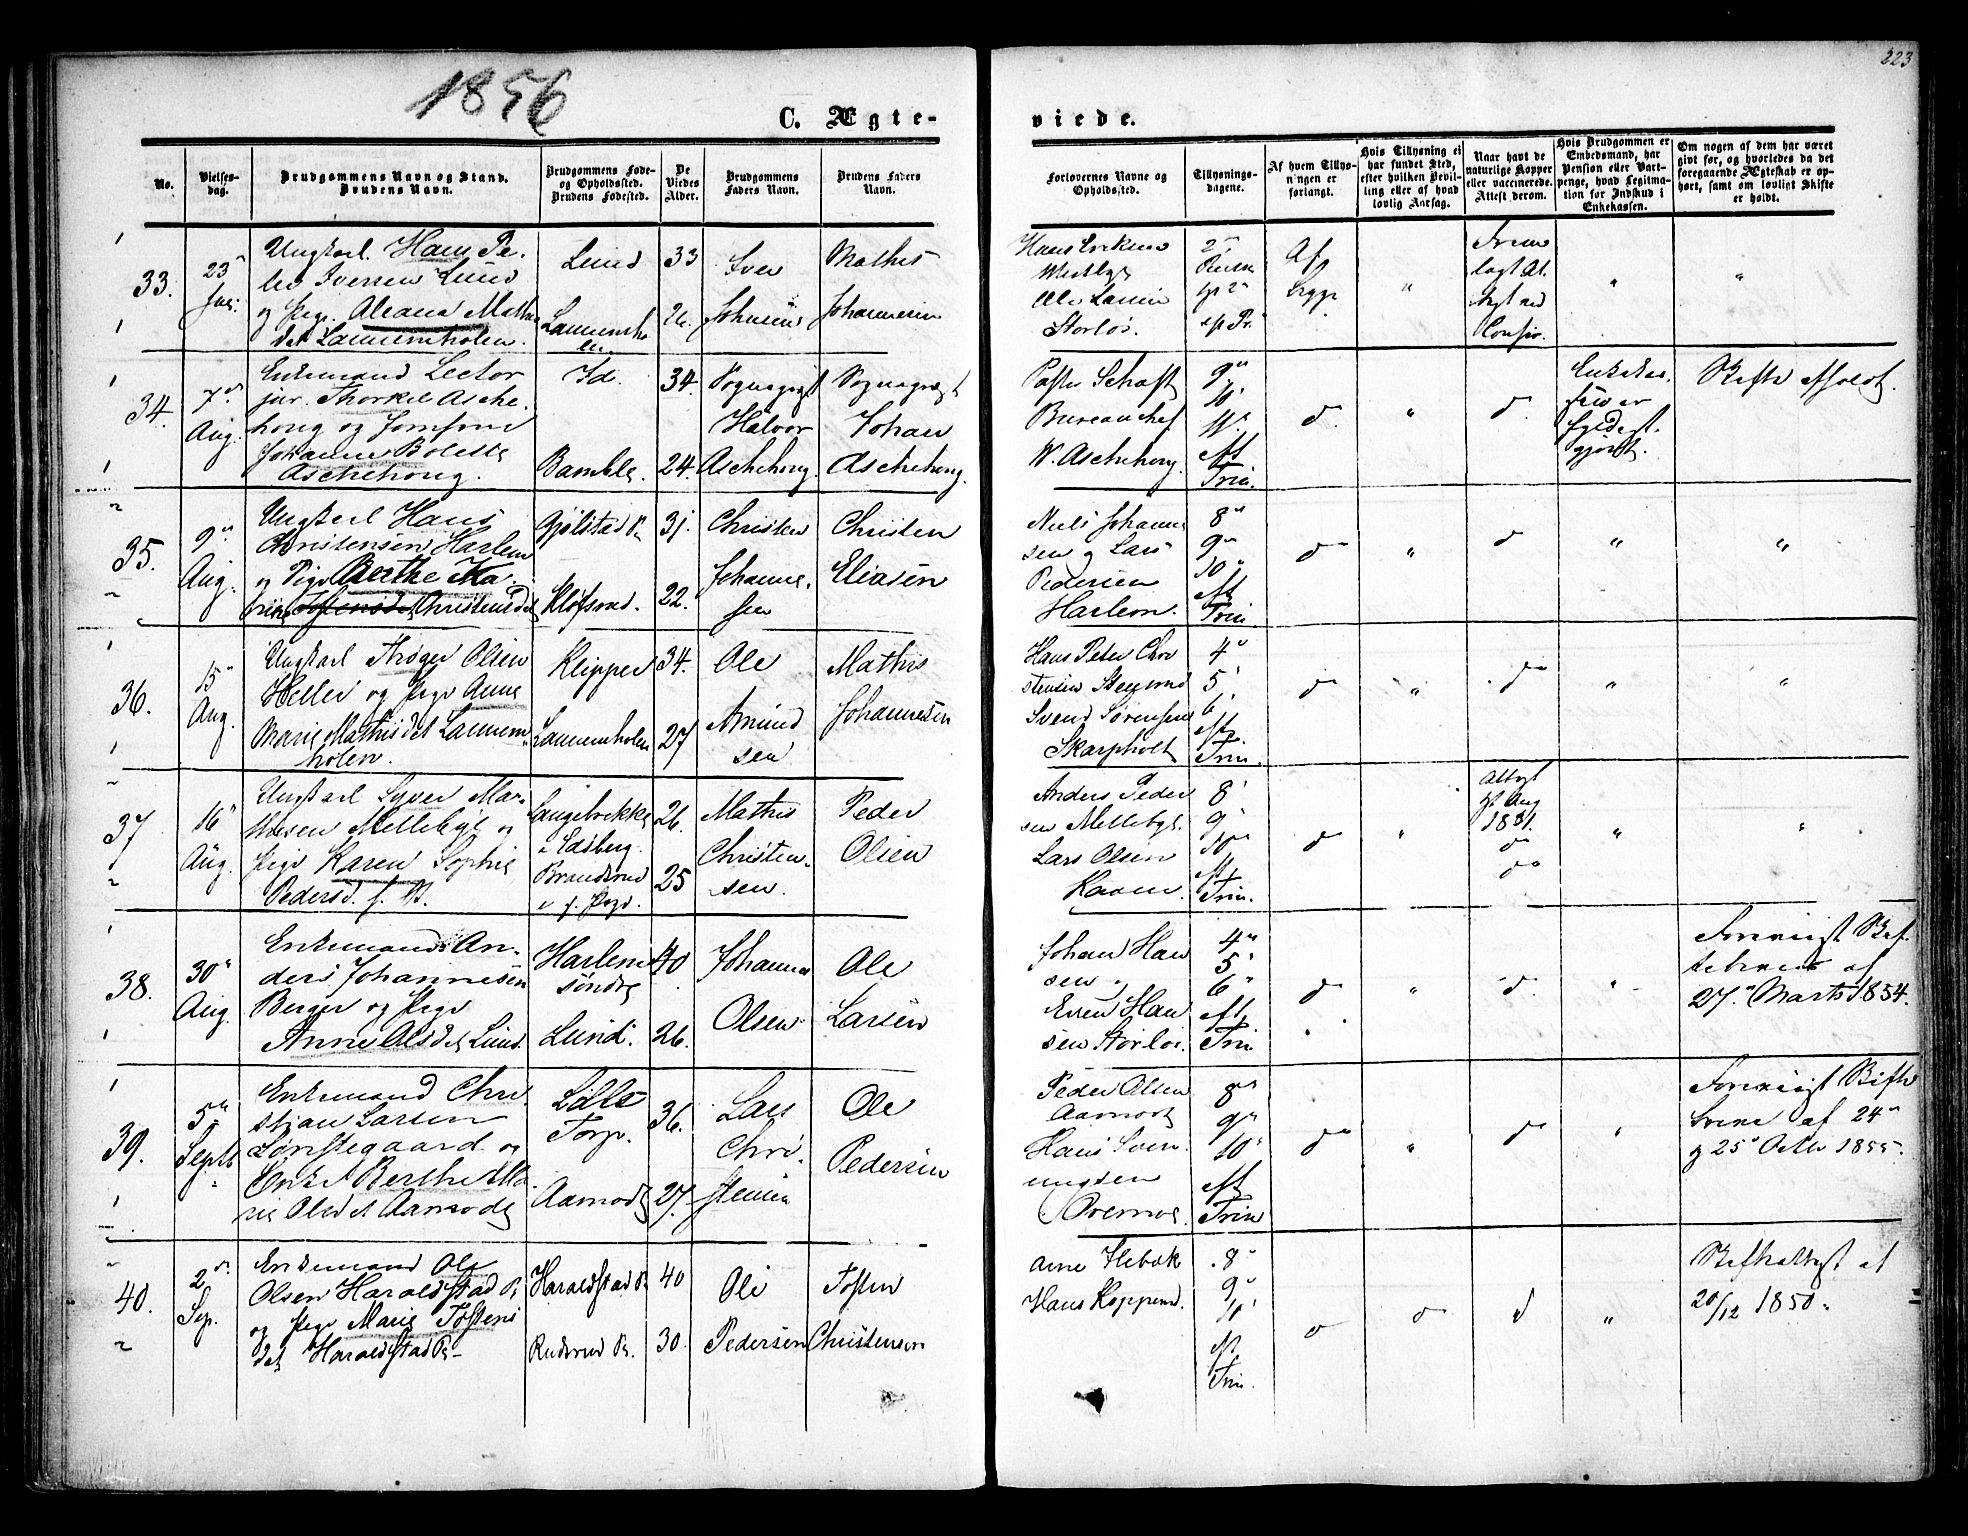 223
1856
C. Ægte-
viede.
No.
Vielses-
dag.
Brudgommens Navn og Stand.
Brudens Navn.
Brudgommens Føde-
og Opholdssted.
Brudens Fødested.
De
Viedes
Alder.
Brudgommens
Faders Navn.
Brudens Faders
Navn.
Forlovernes Navne og
Opholdssted.
Tillysnings-
dagene.
Af hvem Tillys-
ningen er
forlangt.
Hvis Tillysning ei
har fundet Sted,
efter hvilken Bevil-
ling eller af hvad
lovlig Aarsag.
Naar havt de
naturlige Kopper
eller vaccinerede.
Attest derom.
Hvis Brudgommen er
Embedsmand, har
Pension eller Vart-
penge, hvad Legitima-
tion for Indskud i
Enkekassen.
Om nogen af dem har været
gift før, og hvorledes da det
foregaaende Ægteskab er op-
hørt, samt om lovligt Skifte
er holdt.
33.
23
Ungkarl Hans Pe-
ter Iversen Lund
og Pige Oleana Mathis
det Lannemholen.
Lund
Lannemho
len
33
26.
Iver
Johnsen
Mathis
Johannesen
Hans
Ole Larsen
Storløs.
Af
Begge
34.
7
Aug.
Enkemand Lector
jur. Thorkel Asche-
houg og Jomfru
Johanne Bolette
Aschehoug.
Id.
Bamble.
34.
24.
Sogneprest
Halvor
Aschehoug.
Sogneprest
Johan
Aschehoug.
Bureauchef
W. Aschehoug.
9
10
11
eft
Trin.
Skifte afholdt.
35.
9
Aug.
Ungkarl Hans
Christensen Harlem
og Pige Berthe Ka-
trine Christensdet
Gjølstad
Kløfsrud.
31.
22.
Christen
Johanne-
sen
Christen
Eliasen
Niels Johanne
sen og Lars
Pedersen
Harlem.
8
9
10
eft
Trin.
36.
15
Aug.
Ungkarl Thøger Olsen
Heller og Pige Anne
Marie Mathisdet Lannem
holen.
Klipper
Lannemholen
34.
27
Ole
Amund
sen
Mathis
Johannesen
Hans Peter Chri
stensen Stensrud
Svend Sørensen
Skarpholt
4
5
6
eft.
Trin.
37
16
Aug.
Ungkarl Syver Mat-
hisen Mellebye og
Pige Karen Sophie
Pedersd. f. B.
Langebrekke
i Edsberg.
Brandsrud
26.
25
Mathis
Christen-
sen.
Peder
Olsen
Anders Peder
sen Mellebye.
Lars Olsen
8
9
10
eft
Trin.
Attest
Aug
1831.
38.
30
Aug.
Enkemand An-
ders Johannesen
Berger og Pige
Anne Olsdet Lund.
Harlem
søndre
Lund.
40
26.
Johannes
Olsen
Ole
Larsen
Johan Han
sen og
Even Han
sen Storløs.
4
5
6
eft.
Trin.
Foreviist Skif
tebrev af
27. Marts 1854.
39.
5
Septb
Enkemand Chri
stian Larsen
og
Enke Berthe Ma
rie Olsdet Aamodt
Lille
Torp.
Aamodt
36.
27.
Lars
Chri-
stensen
Ole
Pedersen
Peder Olsen
Aamodt
Hans Sven
ungsen
8
9
10
eft
Trin
Foreviist Skifte
breve af 24
og 25 Octbr 1855.
40.
2
Sep.
Enkemand Ole
Olsen Haraldstad
og Pige Marie Tostens
det Haraldstad
Haraldstad
Rudsrud
40
30.
Ole
Pedersen
Tosten
Christensen
Arne Flebæk
Hans Kopperud.
8
9
10
eft
Trin.
Skifteattest af
20/12 1850.